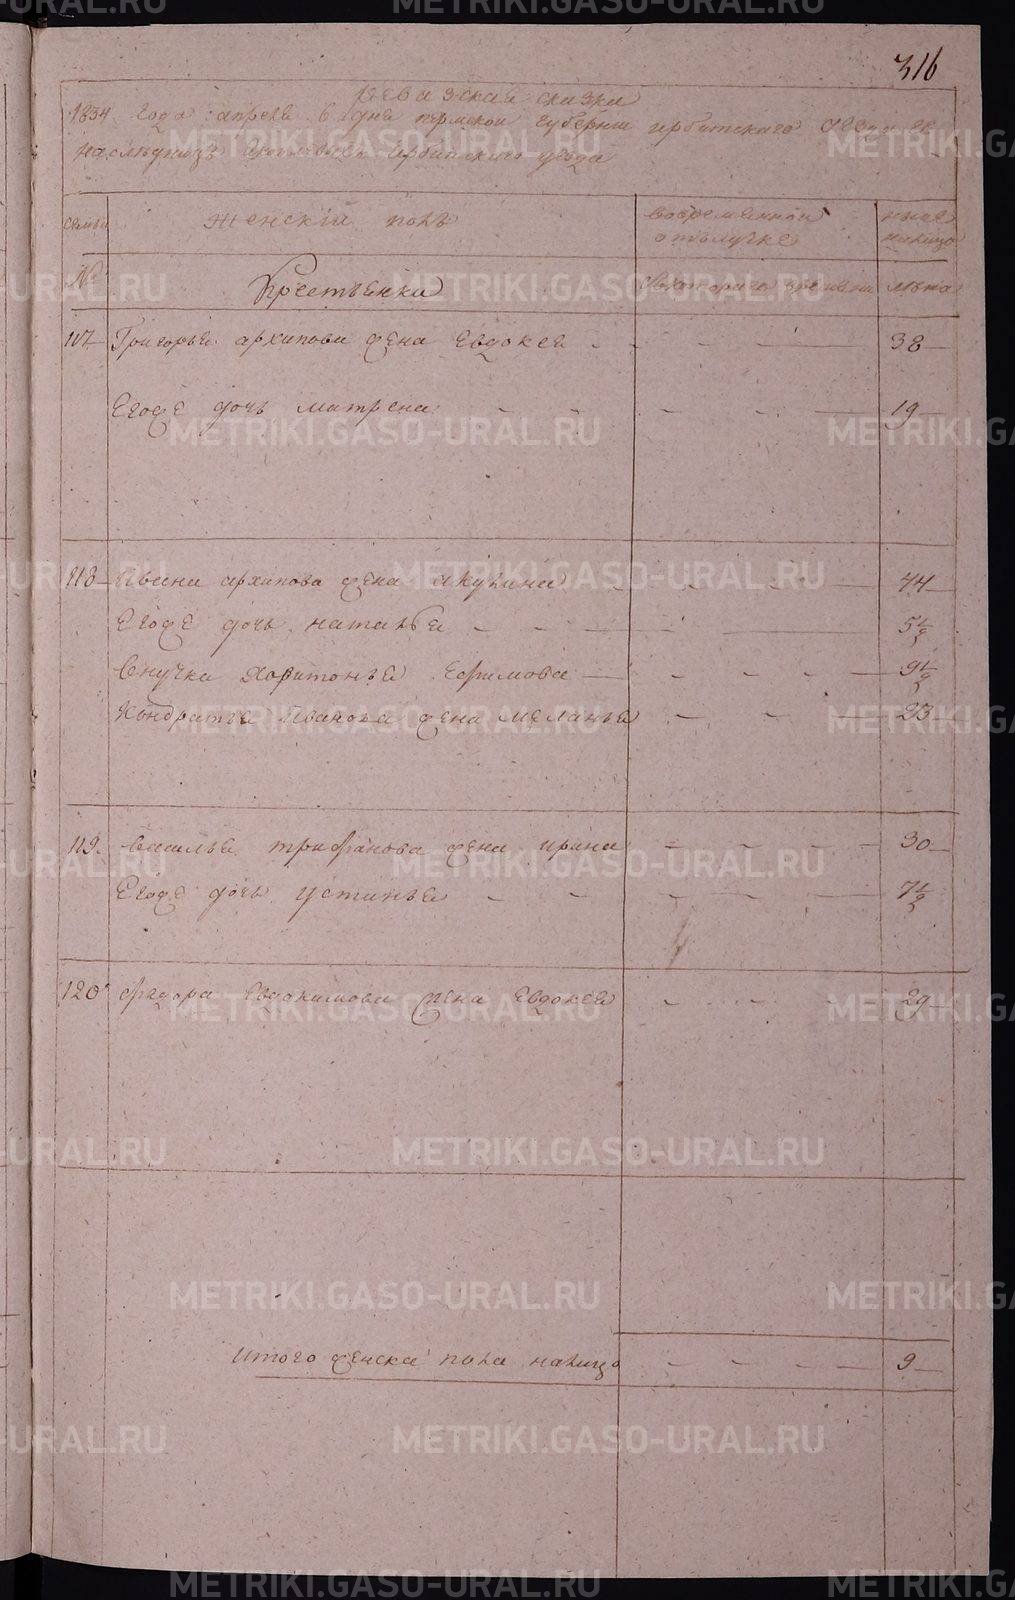 316
Ревазская сказка
1834 года апреля 6 дня пермской губернии ирбитского
наследниц Ирбитского уезда
семьи Женскій полъ вовременной отълучке ныне налицо
№ Крестьенки скоторага времени лета
117 Григорья архипова жена Евдокея 38
Егоже дочь матрена 19
118 Ивана архипова жена акулина 44
Егоже дочь наталья 5½
Внучка Харитонья Ефимова 9½
Кондратья Иванова жена меланья 23
119 Василья трифанова жена ирина 30
Егоже дочь устинья 7½
120 федора Евдокимова жена Евдокея 29
итого женска пола налицо 9
METRIKI.GASO-URAL.RU